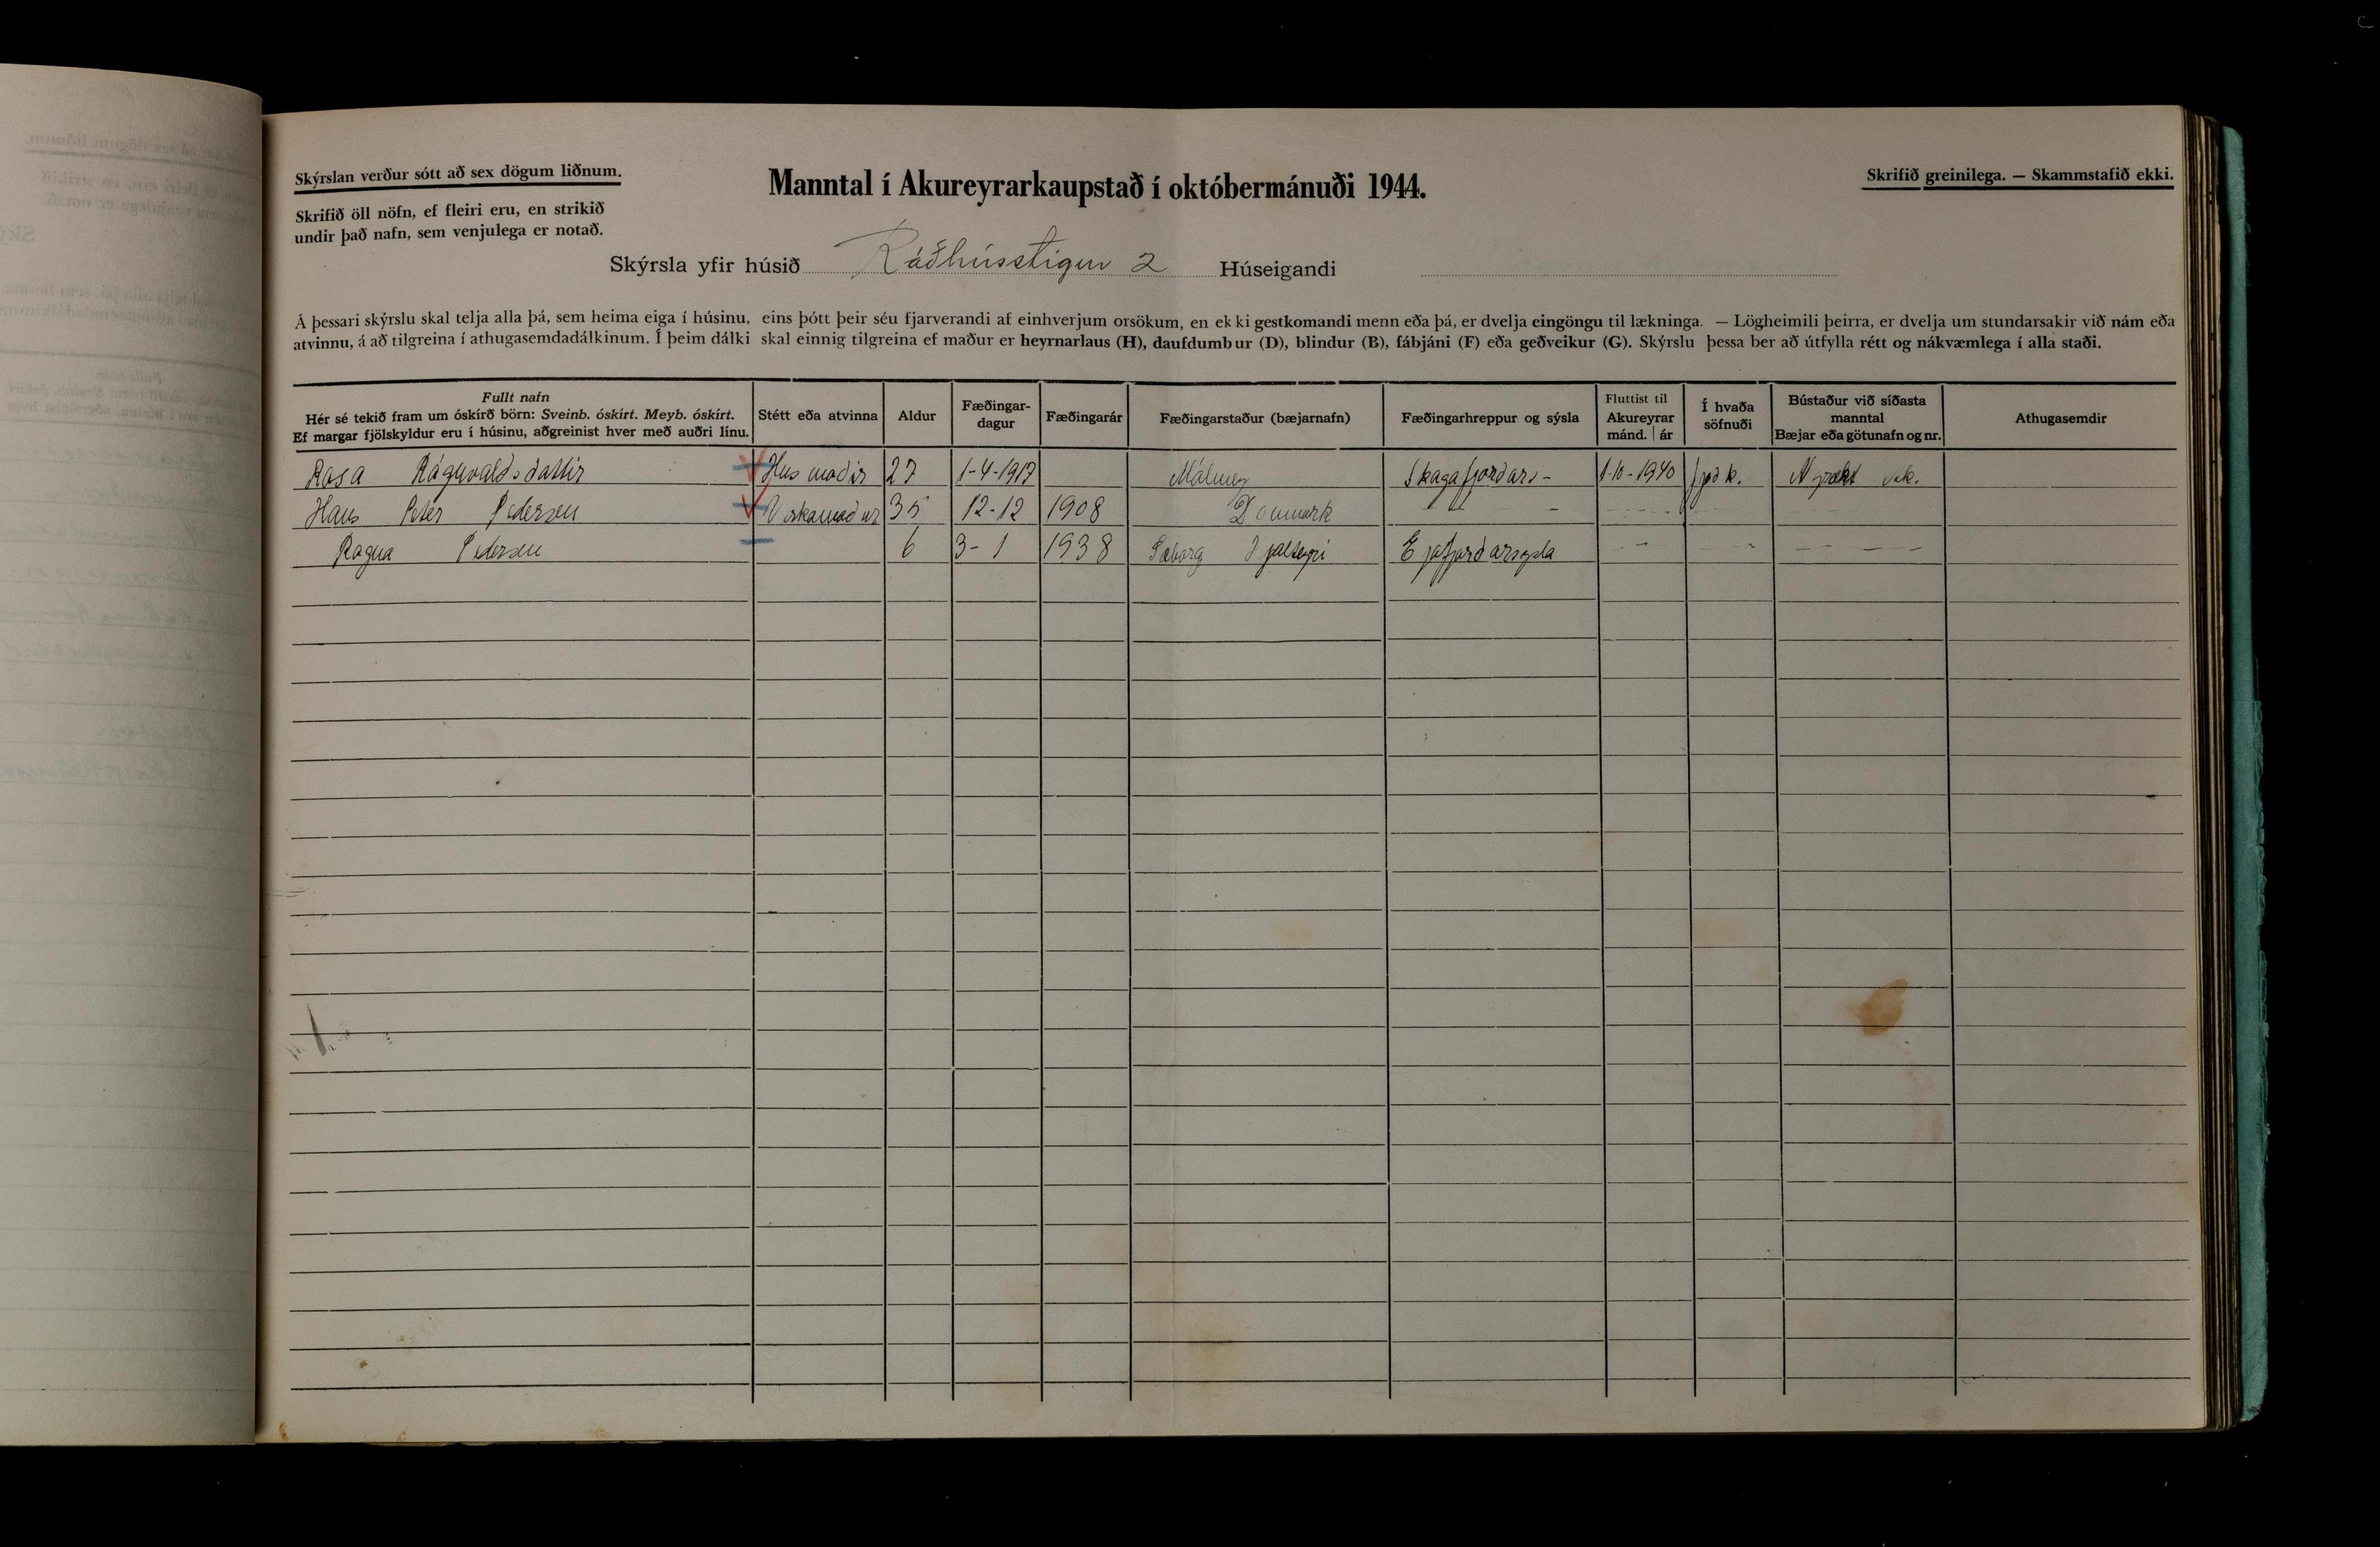 Skýrslan verður sótt að sex dögum liðnum.
Skrifið öll nöfn, ef fleiri eru, en strikið
undir það nafn, sem venjulega er notað.
Manntal í Akureyrarkaupstað í októbermánuði 1944.
Skrifið greinilega. — Skammstafið ekki.
Skýrsla yfir húsið Ráðhússtigur 2 Húseigandi
Á þessari skýrslu skal telja alla þá, sem heima eiga í húsinu, eins þótt þeir séu fjarverandi af einhverjum orsökum, en ekki gestkomandi menn eða þá, er dvelja eingöngu til lækninga. — Lögheimili þeirra, er dvelja um stundarsakir við nám eða
atvinnu, á að tilgreina í athugasemdadálkinum. Í þeim dálki skal einnig tilgreina ef maður er heyrnarlaus (H), daufdumbur (D), blindur (B), fábjáni (F) eða geðveikur (G). Skýrslu þessa ber að útfylla rétt og nákvæmlega í alla staði.
Fullt nafn
Hér sé tekið fram um óskírð börn: Sveinb. óskírt. Meyb. óskírt.
Ef margar fjölskyldur eru í húsinu, aðgreinist hver með auðri línu.
Stétt eða atvinna
Aldur
Fæðingar-
dagur
Fæðingarár
Fæðingarstaður (bæjarnafn)
Fæðingarhreppur og sýsla
Fluttist til
Akureyrar
mánd. | ár
Í hvaða
söfnuði
Bústaður við síðasta
manntal
Bæjar eða götunafn og nr.
Athugasemdir
Rosa Rágnvaldsdattir Husmoðir 27 1-4-1917 Málmey Skagafjordars- 1-10-1940 þjoðk.
Hans Peter Pedersen Verkamadur 35 12-12 1908 Danmark
Ragna Pedersen 6 3-1 1938 Sæborg Hjalteyri Eyjafjordarsysla